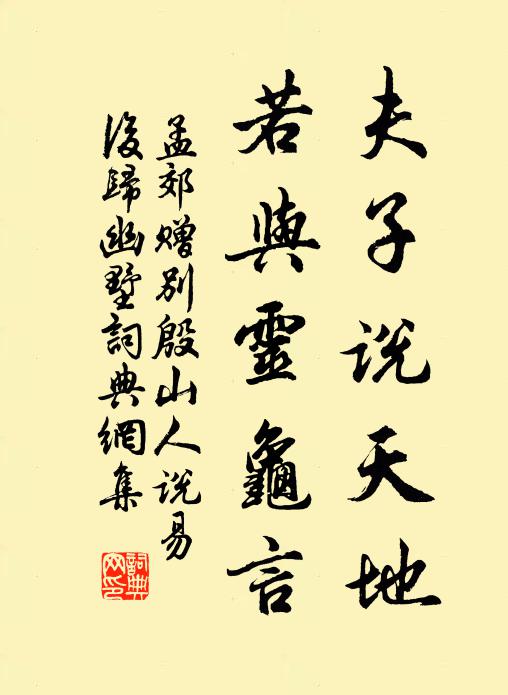 夫子说天地
若與靈龜言
孟郊赠别殷山人说易
後歸幽墅詞典網集
詞典
网印